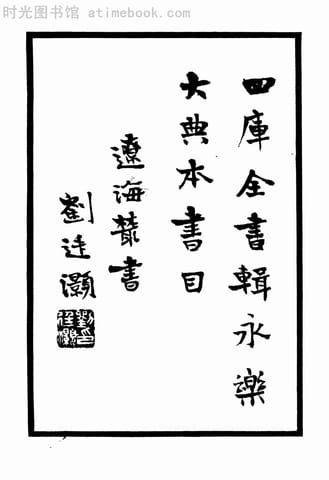 时光图书馆 · atimebook.com
四庫全書輯永樂
大典本書目
遼海叢書
劉廷灝